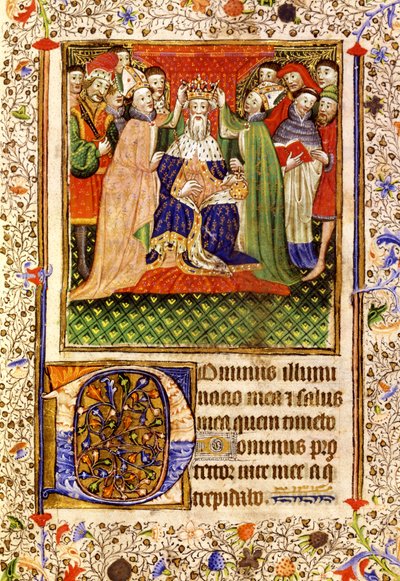 Dominus illumi
nacio mea ⁊ salus
mea quem timebo
Dominus pro
tector vite mee a q
trepidabo